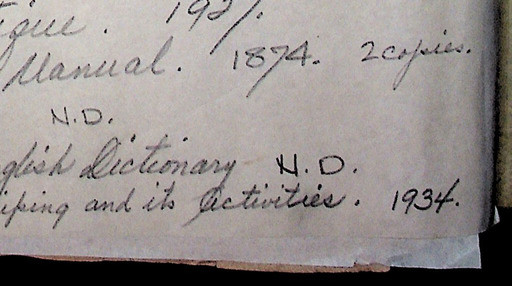 ique. 192/.
Manual. 1874. 2 copies.
N.D.
glish Dictionary N.D.
iping and its Activities. 1934.